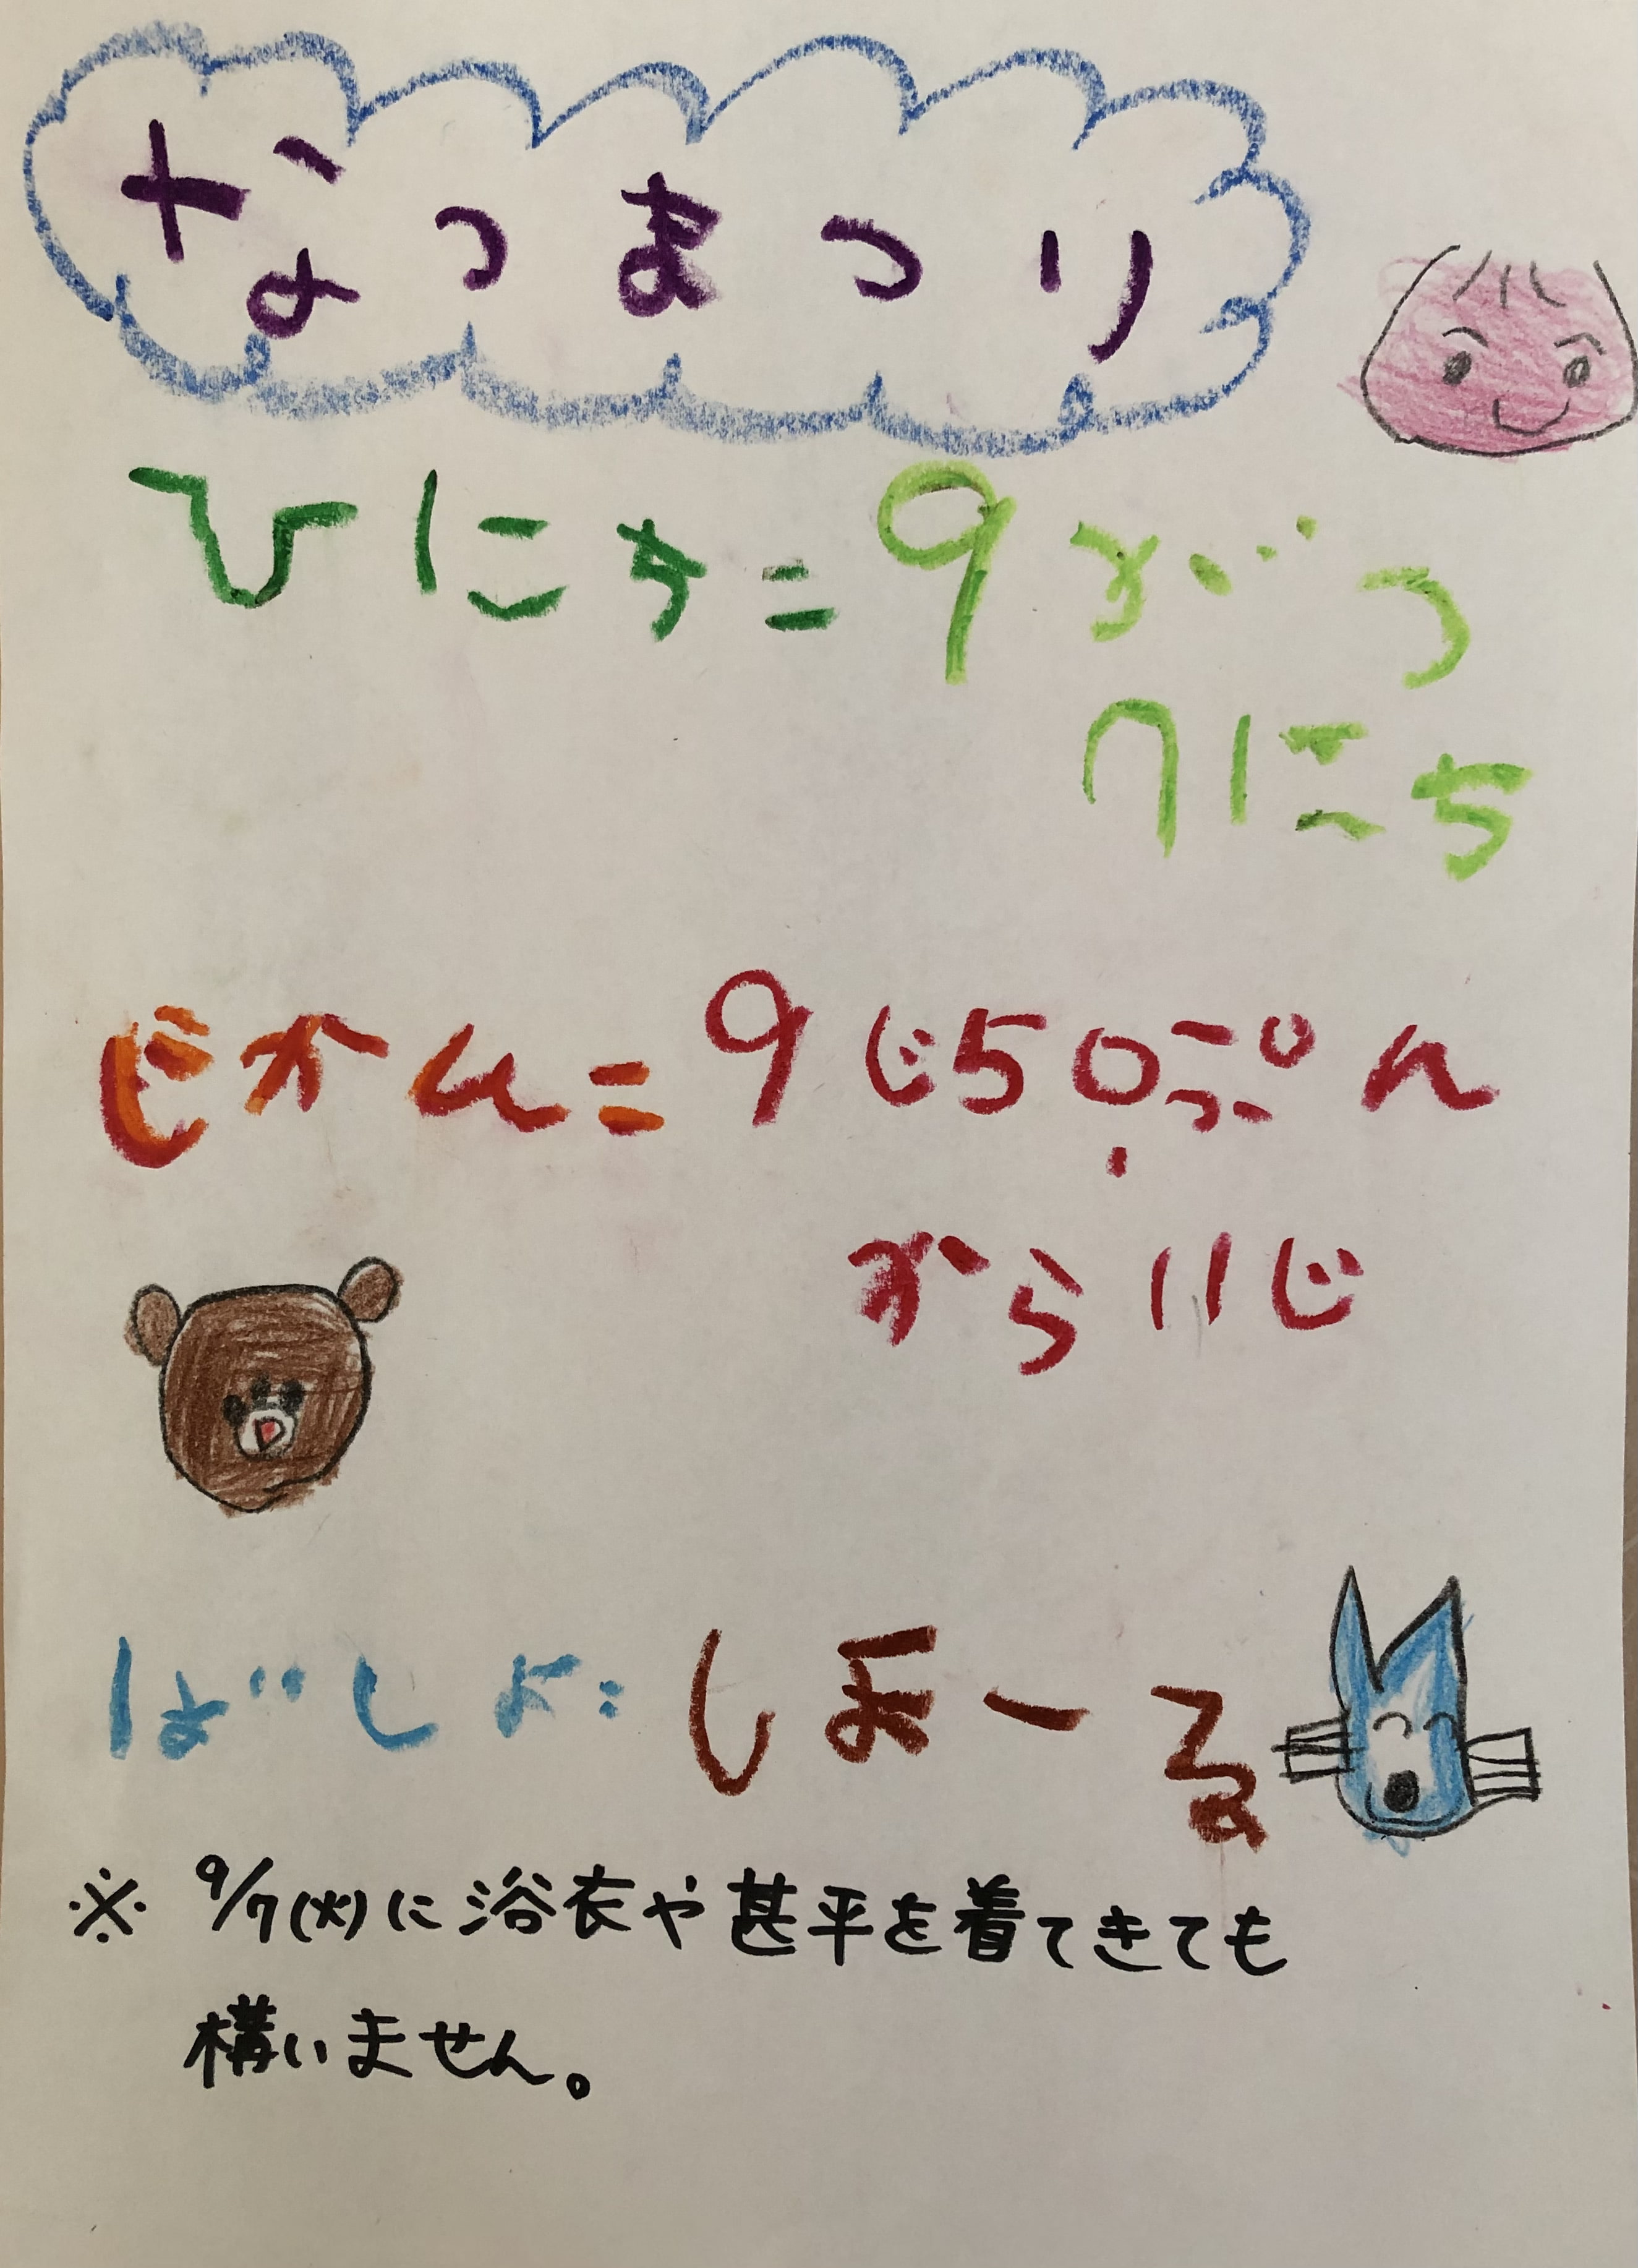 なつまつり
ひにち=9がつ
7にち
じかん=9じ50ぷん
から11じ
ばしょ:しょーる
※ 9/7(火)に浴衣や甚平を着てきても
構いません。